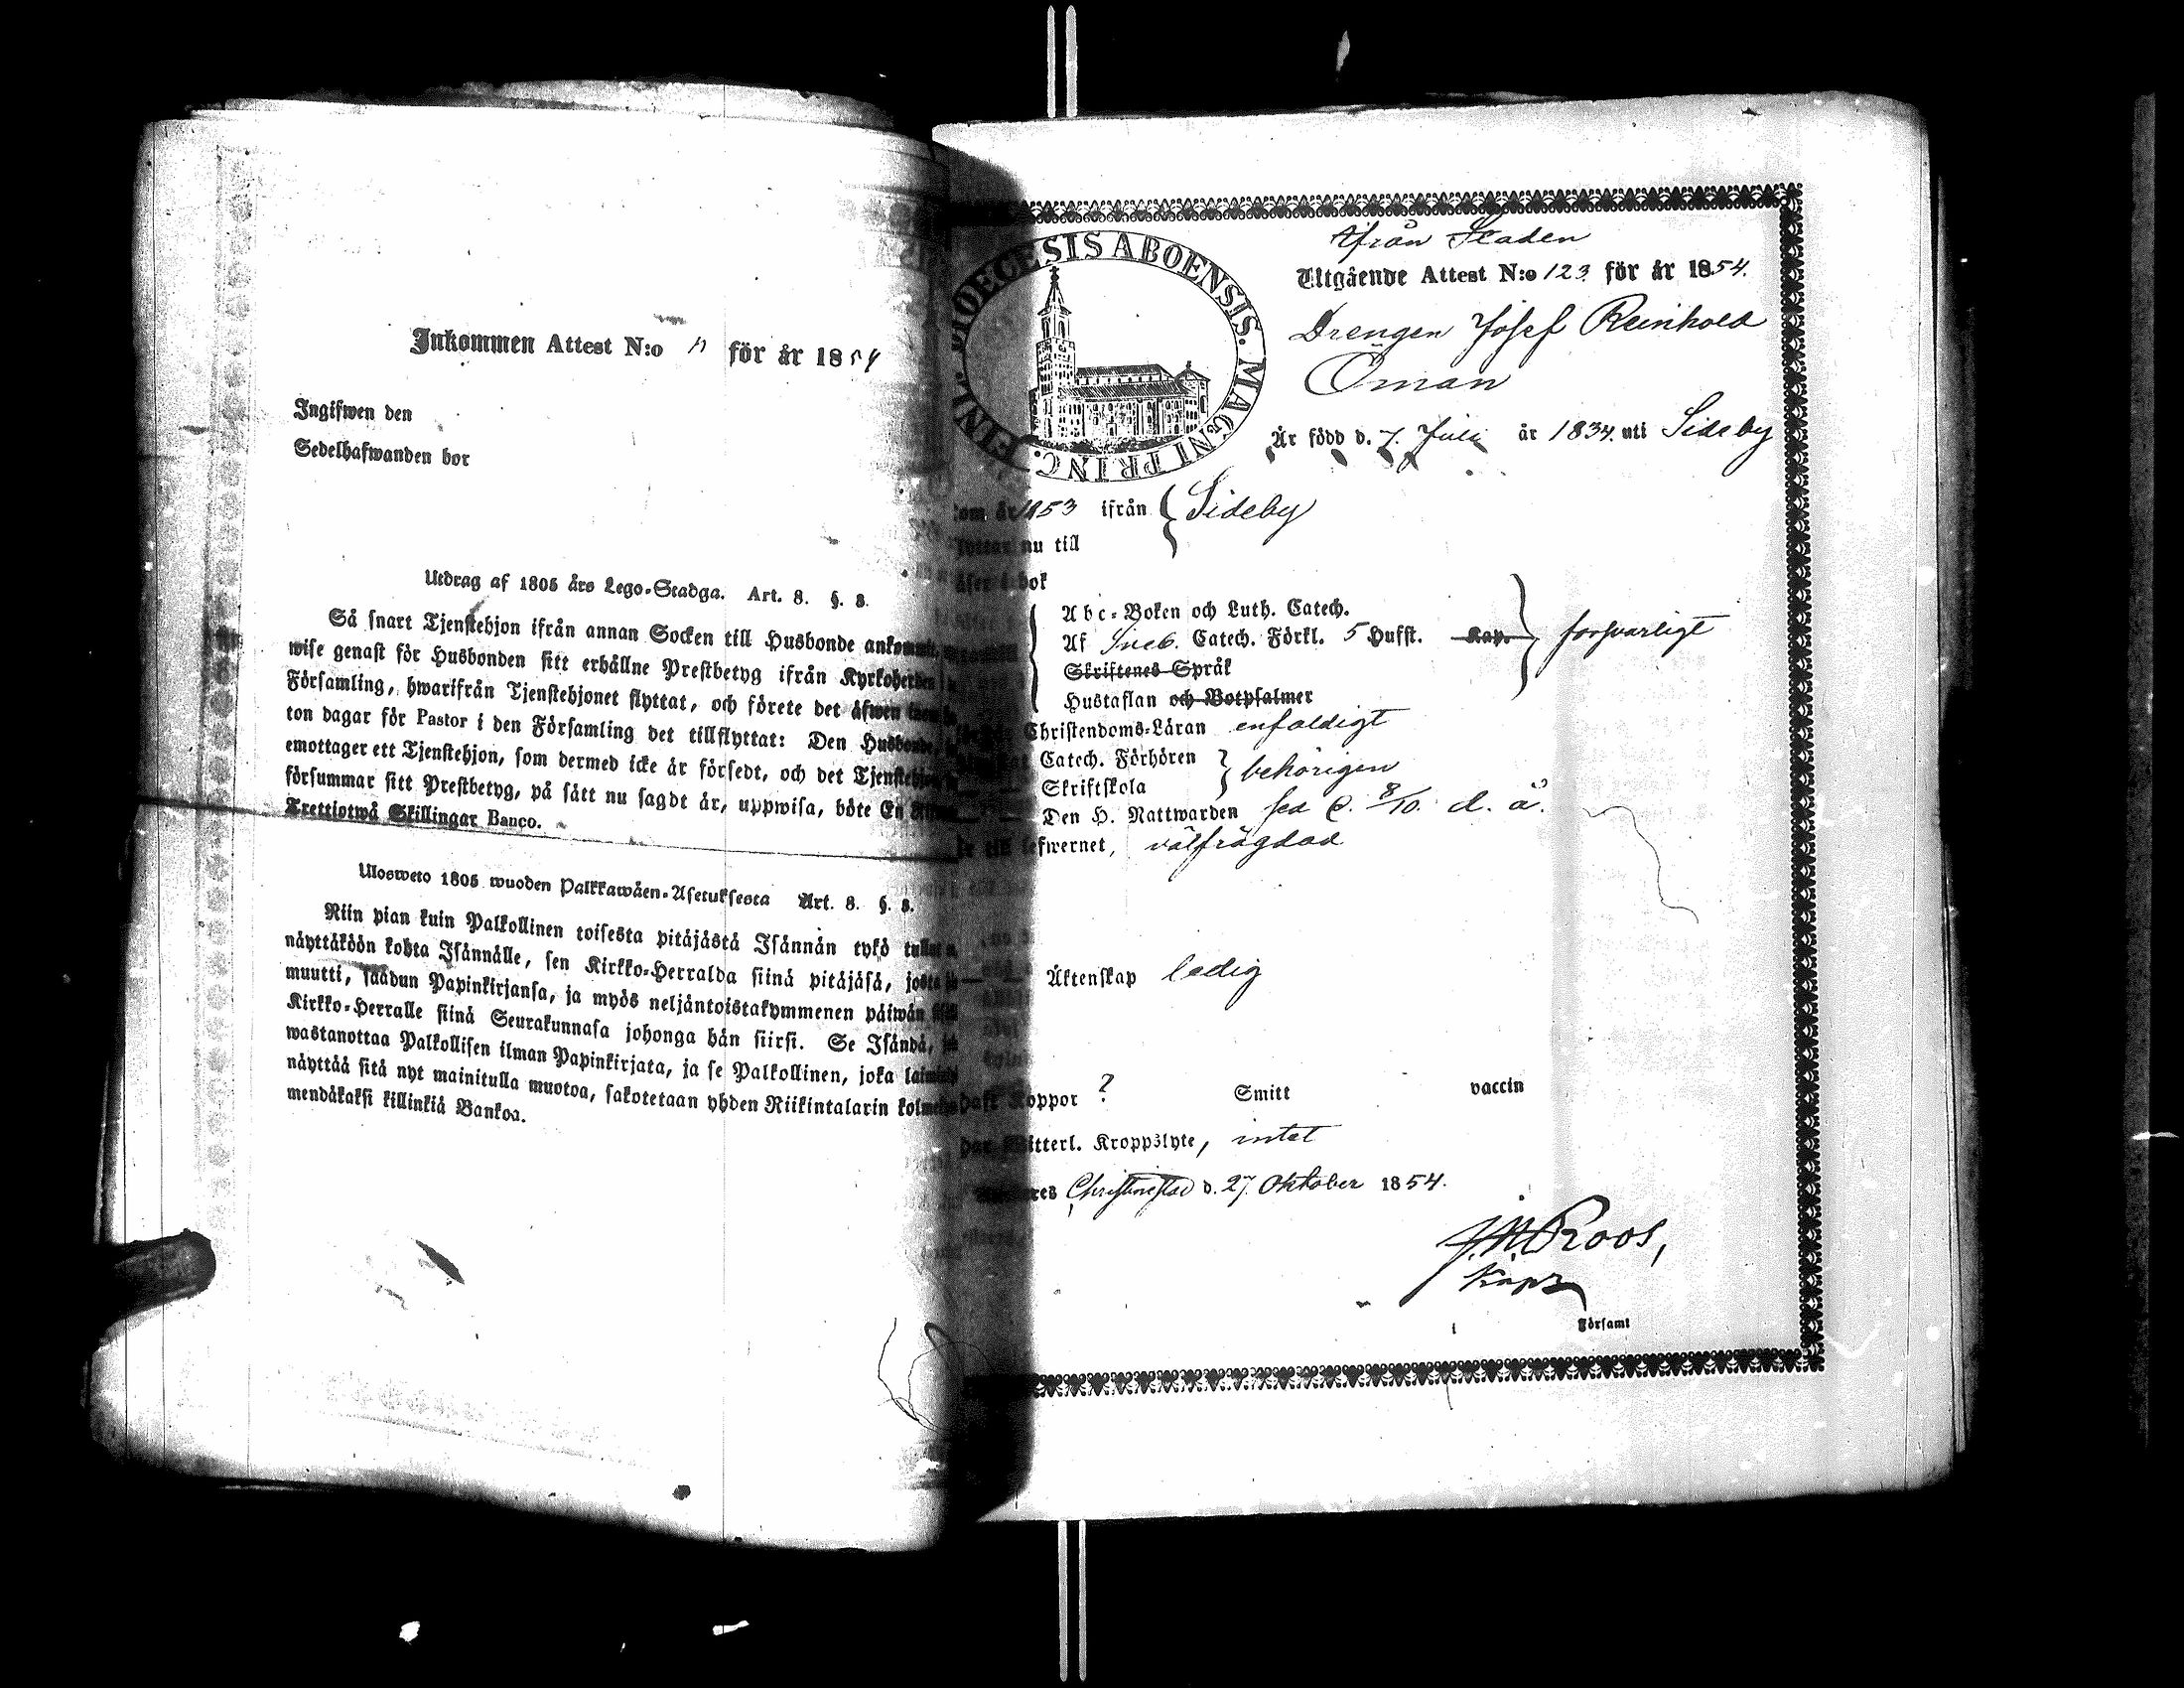 Inkommen Attest N:o för år 1854
Ingifwen den
Sedelhafwanden bor
Utdrag af 1805 års Lego-Stadga. Art. 8. §. 8.
Så snart Tjenstehjon ifrån annan Socken till Husbonde ankommit,
wise genast för Husbonden sitt erhållne Prestbetyg ifrån Kyrkoherden
Församling, hwarifrån Tjenstehjonet flyttat, och förete det äfwen
ton dagar för Pastor i den Församling det tillflyttat: Den Husbonde,
emottager ett Tjenstehjon, som dermed icke är försedt, och det Tjenstehjon
försummar sitt Prestbetyg, på sätt nu sagdt är, uppwisa, böte En
Trettiotwå Skillingar Banco.
Ulosweto 1805 wuoden Palkkawäen-Asetuksesta Art. 8. §. 8.
Niin pian kuin Palkollinen toisesta pitäjästä Isännän tykö tullut
näyttäköön kohta Isännälle, sen Kirkko-Herralda siinä pitäjäsä, josta
muutti, saadun Papinkirjansa, ja myös neljäntoistakymmenen päiwän
Kirkko-Herralle siinä Seurakunnasa johonga hän siirsi. Se Isändä,
wastanottaa Palkollisen ilman Papinkirjata, ja se Palkollinen, joka
näyttää sitä nyt mainitulla muotoa, sakotetaan yhden Riikintalarin
mendäkaksi killinkiä Bankoa.
DIOECESIS ABOENSIS. MAGNI PRINC. FINL.
Ifrån Staden
Utgående Attest N:o 123 för år 1854.
Drengen Josef Reinhold
Öman
Är född d. 7. Juli år 1834. uti Sideby
om år 1853 ifrån Sideby
flyttar nu till
läser i bok
Abc-Boken och Luth. Catech.
Af Sveb. Catech. Förkl. 5 Hufst. Kap. försvarligt
Skriftenes Språk
Hustaflan och Botpsalmer
Christendoms-Läran enfaldigt
Catech. Förhören
behörigen
Skriftskola
Den H. Nattwarden sed. 8/10. d. å.
lefwernet, välfrägdad
Äktenskap ledig
haft Koppor ? Smitt vaccin
har Witterl. Kroppslyte, intet
Christinestad d. 27. Oktober 1854.
J. M. Roos,
Församl